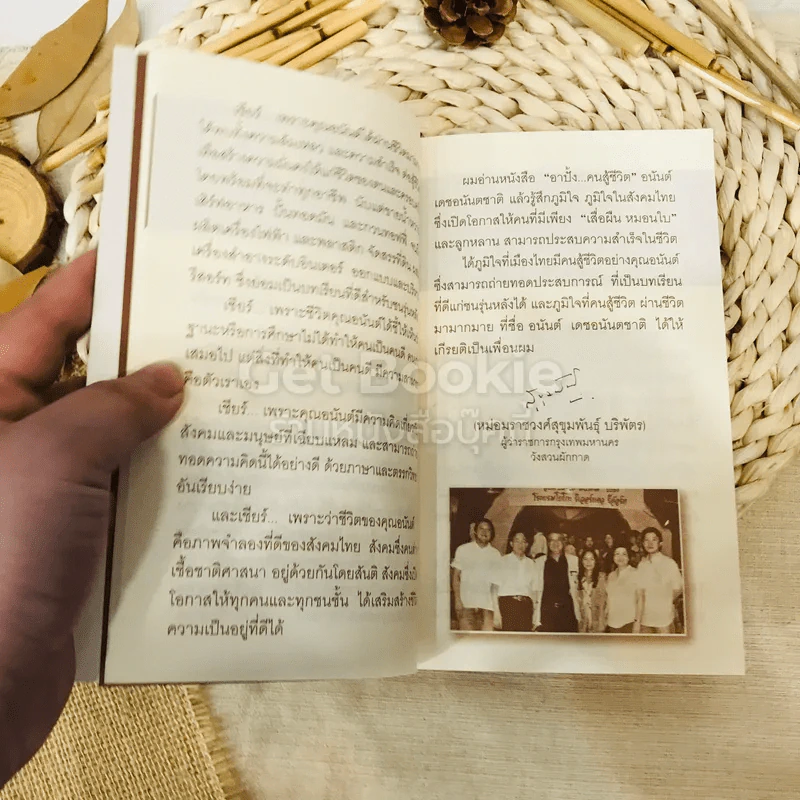 เชียร์... เพราะคุณอนันต์ได้
และความสำเร็จ
โดยพร้อมที่จะทำทุกอาชีพ นับแต่ขายน้ำ
เสิร์ฟอาหาร ปั๊มทองมัน และกวนทอฟฟี่ จนถึง
ผลิตเครื่องไฟฟ้า และพลาสติก จัดสรรที่ดิน
เครื่องสำอางระดับอินเตอร์ ออกแบบและบริหาร
รีสอร์ท ซึ่งย่อมเป็นบทเรียนที่ดีสำหรับชนรุ่นหลัง
เชียร์... เพราะชีวิตคุณอนันต์ได้ชี้ให้เห็น
ฐานะหรือการศึกษาไม่ได้ทำให้คนเป็นคนดี
เสมอไป แต่สิ่งที่ทำให้คนเป็นคนดี มีความสามารถ
คือตัวเราเอง
เชียร์... เพราะคุณอนันต์มีความคิดเกี่ยวกับ
สังคมและมนุษย์ที่เฉียบแหลม และสามารถถ่าย
ทอดความคิดนี้ได้อย่างดี ด้วยภาษาและตรรกวิทยา
อันเรียบง่าย
และเชียร์... เพราะว่าชีวิตของคุณอนันต์
คือภาพจำลองที่ดีของสังคมไทย สังคมซึ่งคน
เชื้อชาติศาสนา อยู่ด้วยกันโดยสันติ สังคมซึ่งเปิด
โอกาสให้ทุกคนและทุกชนชั้น ได้เสริมสร้างชีวิต
ความเป็นอยู่ที่ดีได้
ผมอ่านหนังสือ “อาปั้ง...คนสู้ชีวิต” อนันต์
เดชอนันตชาติ แล้วรู้สึกภูมิใจ ภูมิใจในสังคมไทย
ซึ่งเปิดโอกาสให้คนที่มีเพียง “เสื่อผืน หมอนใบ”
และลูกหลาน สามารถประสบความสำเร็จในชีวิต
ได้ภูมิใจที่เมืองไทยมีคนสู้ชีวิตอย่างคุณอนันต์
ซึ่งสามารถถ่ายทอดประสบการณ์ ที่เป็นบทเรียน
ที่ดีแก่ชนรุ่นหลังได้ และภูมิใจที่คนสู้ชีวิต ผ่านชีวิต
มามากมาย ที่ชื่อ อนันต์ เดชอนันตชาติ ได้ให้
เกียรติเป็นเพื่อนผม
(หม่อมราชวงศ์สุขุมพันธุ์ บริพัตร)
ผู้ว่าราชการกรุงเทพมหานคร
วังสวนผักกาด
Get Bookie
ร้านหนังสือบุ๊คกี้